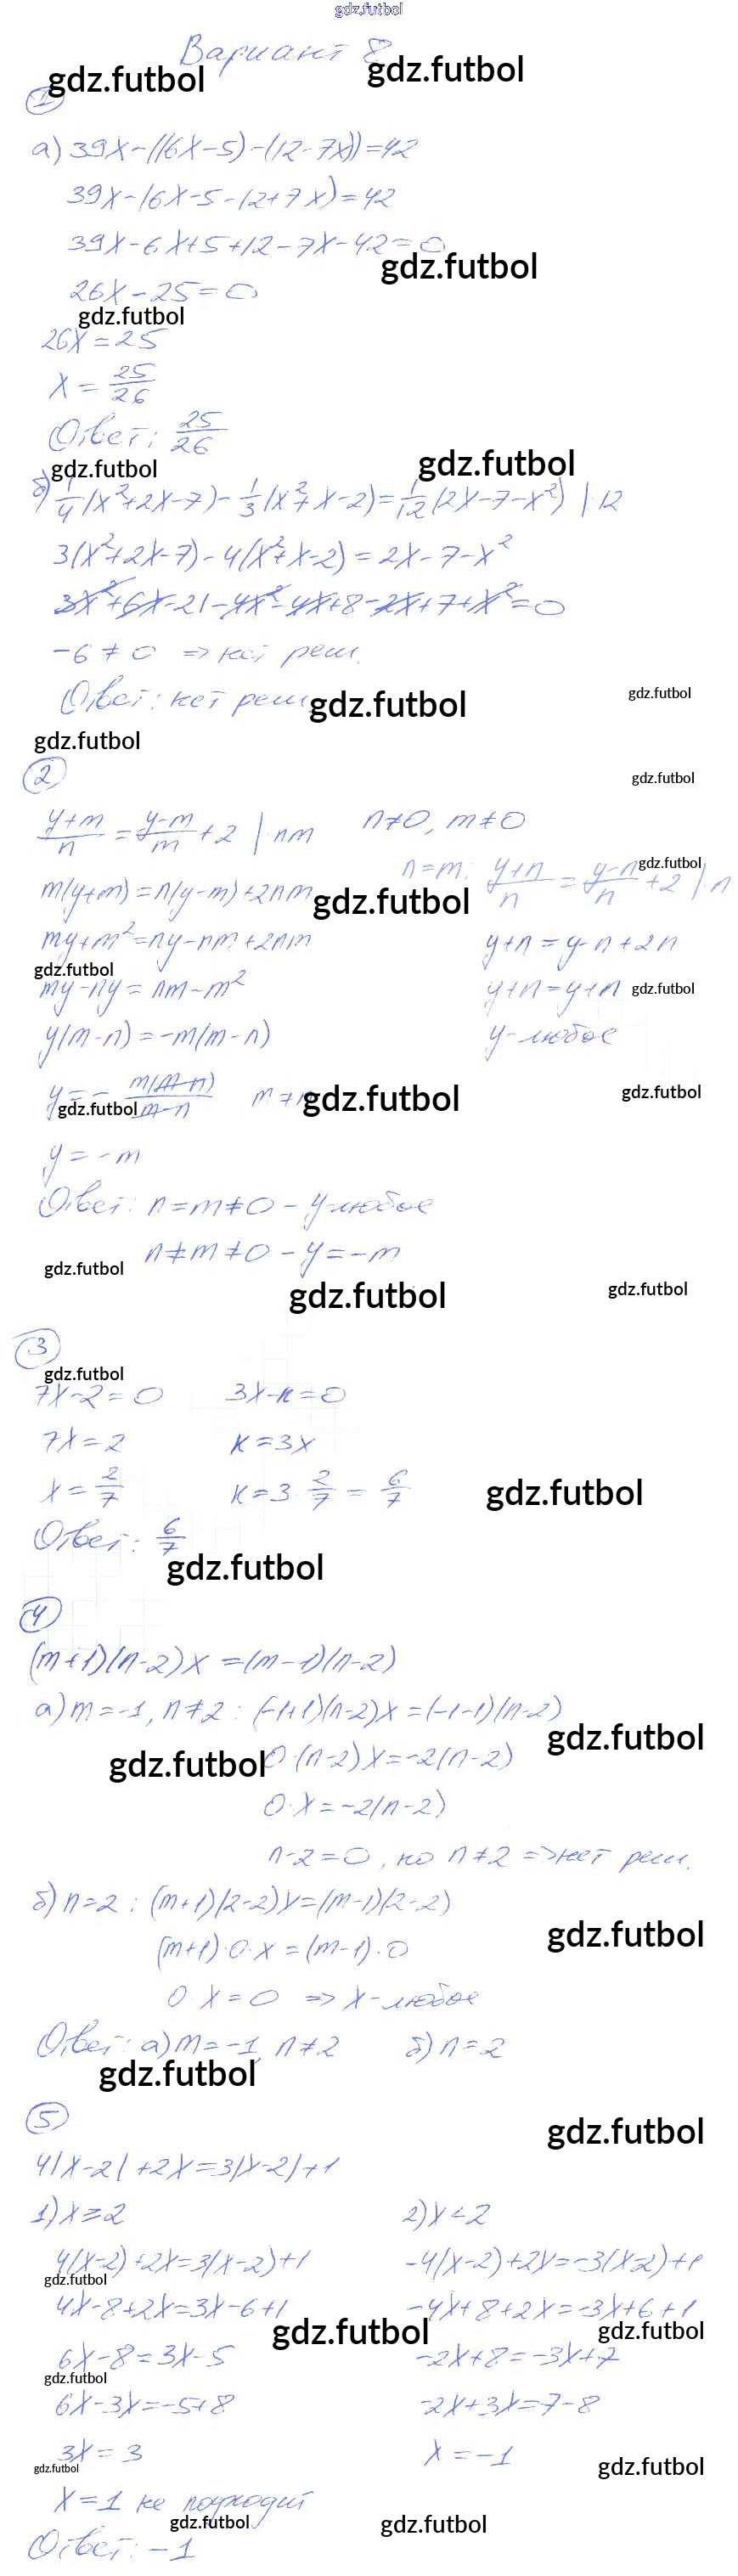 gdz.futbol
Вариант 8
gdz.futbol gdz.futbol
1
а) 39x-((6x-5)-(12-7x))=42
39x-(6x-5-12+7x)=42
39x-6x+5+12-7x-42=0
gdz.futbol
26x-25=0
gdz.futbol
26x=25
x=25/26
Ответ: 25/26
gdz.futbol gdz.futbol
б) 1/4(x²+2x-7)-1/3(x²+x-2)=1/12(2x-7-x²) |·12
3(x²+2x-7)-4(x²+x-2)=2x-7-x²
3x²+6x-21-4x²-4x+8-2x+7+x²=0
-6≠0 => нет реш.
Ответ: нет реш.
gdz.futbol gdz.futbol
gdz.futbol
2
gdz.futbol
(y+m)/n=(y-m)/m+2 |·nm n≠0, m≠0
n=m: (y+n)/n=(y-n)/n+2 |·n
gdz.futbol
m(y+m)=n(y-m)+2nm
gdz.futbol
my+m²=ny-nm+2nm y+n=y-n+2n
gdz.futbol
my-ny=nm-m² y+n=y+n
gdz.futbol
y(m-n)=-m(m-n) y-любое
y=-m(m-n)/(m-n) m≠n
gdz.futbol gdz.futbol gdz.futbol
y=-m
Ответ: n=m≠0 - y-любое
n≠m≠0 - y=-m
gdz.futbol
gdz.futbol gdz.futbol
3
gdz.futbol
7x-2=0 3x-к=0
7x=2 к=3x
x=2/7 к=3·2/7=6/7
gdz.futbol
Ответ: 6/7
gdz.futbol
4
(m+1)(n-2)x=(m-1)(n-2)
а) m=-1, n≠2: (-1+1)(n-2)x=(-1-1)(n-2)
gdz.futbol
gdz.futbol
0·(n-2)x=-2(n-2)
0·x=-2(n-2)
n-2=0, но n≠2 => нет реш.
б) n=2: (m+1)(2-2)x=(m-1)(2-2)
gdz.futbol
(m+1)·0·x=(m-1)·0
0·x=0 => x-любое
Ответ: а) m=-1, n≠2 б) n=2
gdz.futbol
5
gdz.futbol
4|x-2|+2x=3|x-2|+1
1) x≥2 2) x<2
4(x-2)+2x=3(x-2)+1 -4(x-2)+2x=-3(x-2)+1
gdz.futbol
4x-8+2x=3x-6+1 -4x+8+2x=-3x+6+1
gdz.futbol gdz.futbol
6x-8=3x-5 -2x+8=-3x+7
gdz.futbol
6x-3x=-5+8 -2x+3x=7-8
3x=3 x=-1
gdz.futbol gdz.futbol
x=1 не подходит
gdz.futbol gdz.futbol
Ответ: -1